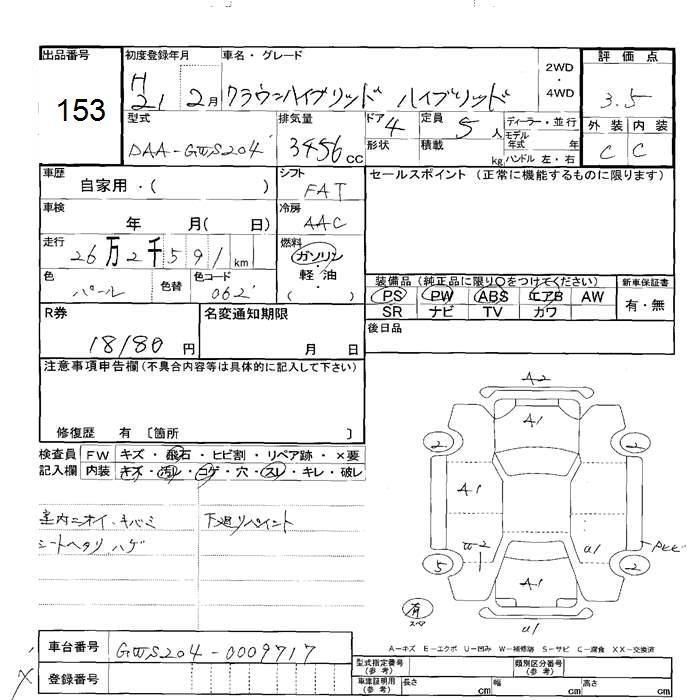 出品番号 初度登録年月 車名・グレード 2WD・4WD 評価点
153 H21 2月 クラウンハイブリッド ハイブリッド 3.5
型式 排気量 ドア 4 定員 5人 ディーラー・並行 外装 内装
DAA-GWS204 3456cc 形状 積載 kg モデル年式 年 ハンドル 左・右 C C
車歴 シフト セールスポイント (正常に機能するものに限ります)
自家用・( ) FAT
車検 冷房
年 月( 日) AAC
走行 燃料
26万2千591km ガソリン・軽油
色 色替 色コード ( )
パール 062
装備品 (純正品に限り○をつけてください) 新車保証書
PS PW ABS エアB AW 有・無
SR ナビ TV カワ
R券 名変通知期限 後日品
18180円 月 日
注意事項申告欄(不具合内容等は具体的に記入して下さい)
修復歴 有 〔箇所 〕
検査員 FW キズ・飛石・ヒビ割・リペア跡・×要
記入欄 内装 キズ・汚れ・コゲ・穴・スレ・キレ・破レ
室内ニオイ・キバミ 下廻りペイント
シートヘタリ、ハゲ
A2
A1
2 2
A1
W-2 U1
5 2
A1
有 スペア
U1
A-キズ E-エクボ U-凹み W-補修跡 S-サビ C-腐食 XX-交換済
車台番号 GWS204-0009717
登録番号
型式指定番号(参考) 類別区分番号(参考)
車庫証明用(参考) 長さ cm 幅 cm 高さ cm